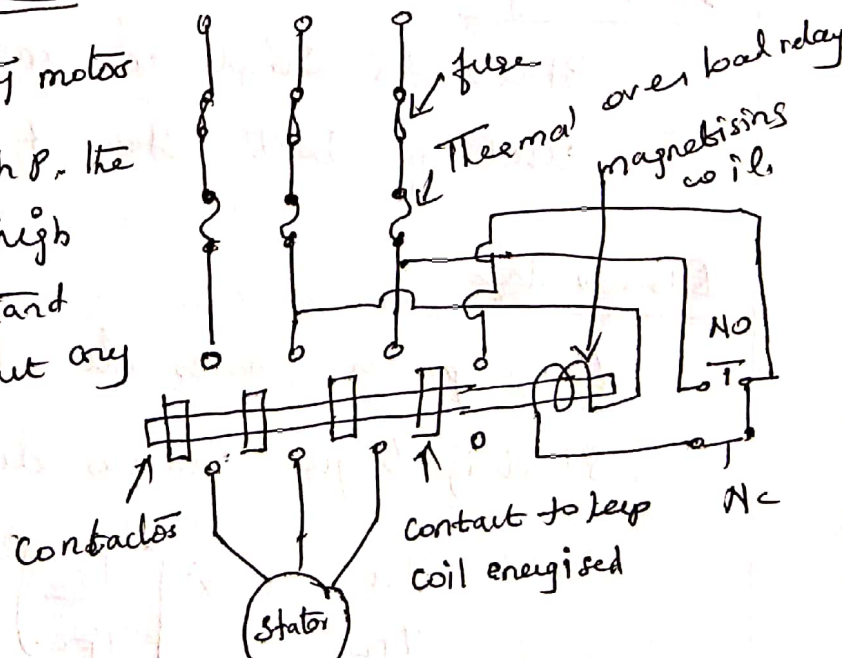 motor
h P. the
high
and
ut any
fuse
Thermal over load relay
magnetising
coil.
NO
NC
Contactor
contact to keep
coil energised
Stator